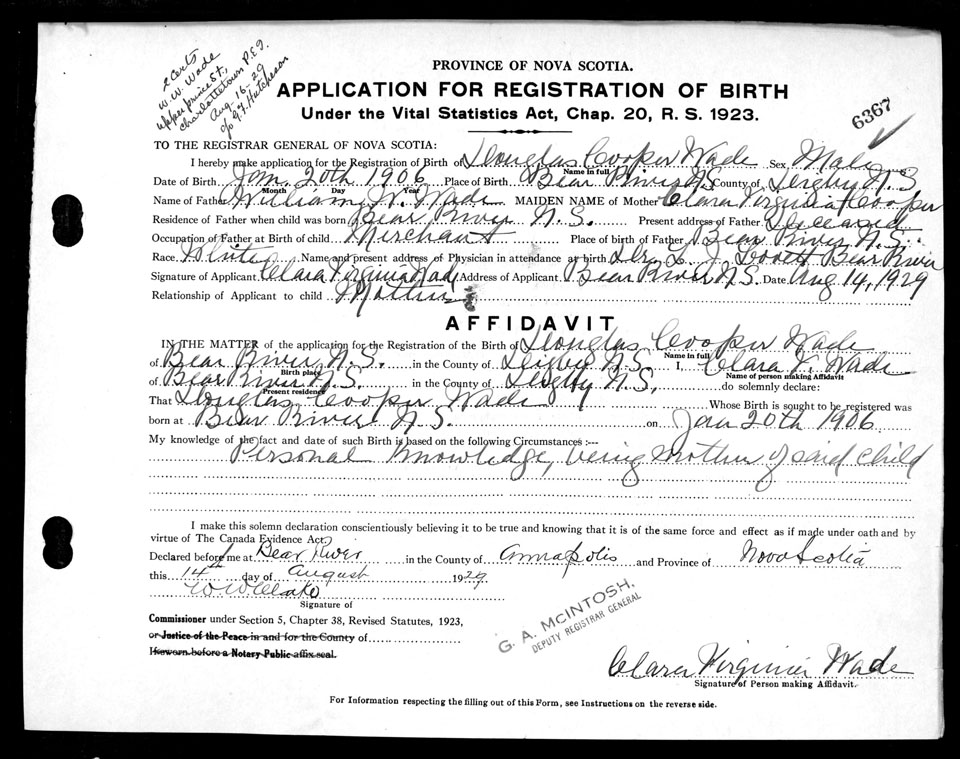 2 Certs
W. W. Wade
Upper Prince St,
Charlottetown P.E.I.
Aug-16-29
c/o G. F. Hutcheson
PROVINCE OF NOVA SCOTIA.
APPLICATION FOR REGISTRATION OF BIRTH
Under the Vital Statistics Act, Chap. 20, R. S. 1923.
6367
TO THE REGISTRAR GENERAL OF NOVA SCOTIA:
I hereby make application for the Registration of Birth of Douglas Cooper Wade Sex Male
Name in full
Date of Birth Jan. 20th 1906 Place of Birth Bear River N.S. County of Digby N.S
Month Day Year
Name of Father William W. Wade MAIDEN NAME of Mother Clara Virginia Cooper
Residence of Father when child was born Bear River N.S. Present address of Father Deceased
Occupation of Father at Birth of child Merchant Place of birth of Father Bear River N.S.
Race. White Name and present address of Physician in attendance at birth Dr. L. J. Lovett Bear River
Signature of Applicant Clara Virginia Wade Address of Applicant Bear River N.S. Date Aug 14, 1929
Relationship of Applicant to child Mother
AFFIDAVIT
IN THE MATTER of the application for the Registration of the Birth of Douglas Cooper Wade
Name in full
of Bear River N.S. in the County of Digby N.S. I, Clara V. Wade
Birth place Name of person making Affidavit
of Bear River N.S. in the County of Digby N.S, do solemnly declare:
Present residence
That Douglas Cooper Wade Whose Birth is sought to be registered was
born at Bear River N.S. on Jan 20th 1906
My knowledge of the fact and date of such Birth is based on the following Circumstances :--
Personal Knowledge, being Mother of said Child
I make this solemn declaration conscientiously believing it to be true and knowing that it is of the same force and effect as if made under oath and by
virtue of The Canada Evidence Act.
Declared before me at Bear River in the County of Annapolis and Province of Nova Scotia
this 14th day of August 1929
Signature of
Commissioner under Section 5, Chapter 38, Revised Statutes, 1923,
or Justice of the Peace in and for the County of
If sworn before a Notary Public affix seal.
G. A. MCINTOSH,
DEPUTY REGISTRAR GENERAL
Clara Virginia Wade
Signature of Person making Affidavit.
For Information respecting the filling out of this Form, see Instructions on the reverse side.